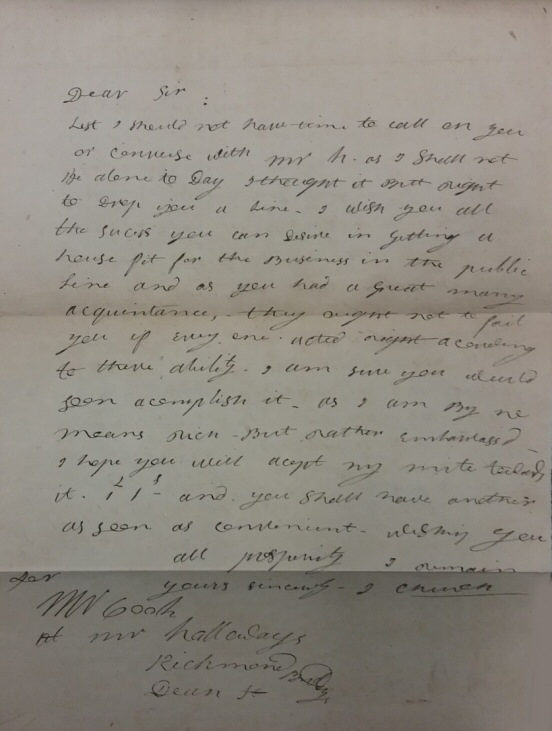 Dear Sir :
Lest I should not have time to call on you
or converse with mr h. as I Shall not
Be alone to Day I thought it Butt right
to Drop you a line - I wish you all
the sucess you can Desire in Getting a
house fit for the Business in the public
line and as you had a Great many
acquintance, - they ought not to fail
you if every one acted right acording
to there ability. I am sure you would
soon acomplish it - as I am By no
means rich - But rather Embarassd -
I hope you will acept my mite towards
it. 1L 1s - and you Shall have another
as soon as convenient - wishing you
all prosperity I remain
yours sincerly - I
for
Mr Cook
At mr halladays
Richmond
Dean St